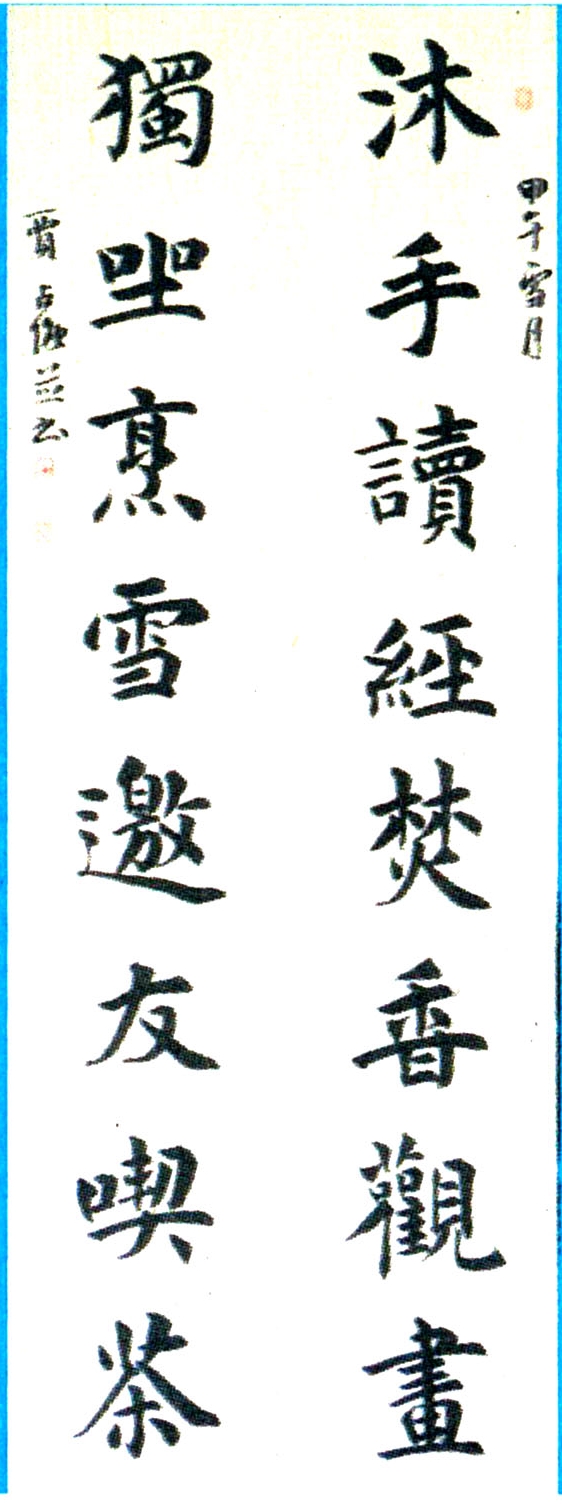 甲午雪月
沐手讀經焚香觀畫
獨坐烹雪邀友喫茶
賈占 並书